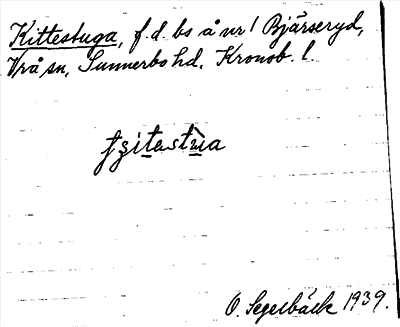 Kittestuga, f.d. bs å nr 1 Bjärseryd,
Vrå sn, Sunnerbo hd. Kronob. l.
O. Segelbäck 1939.